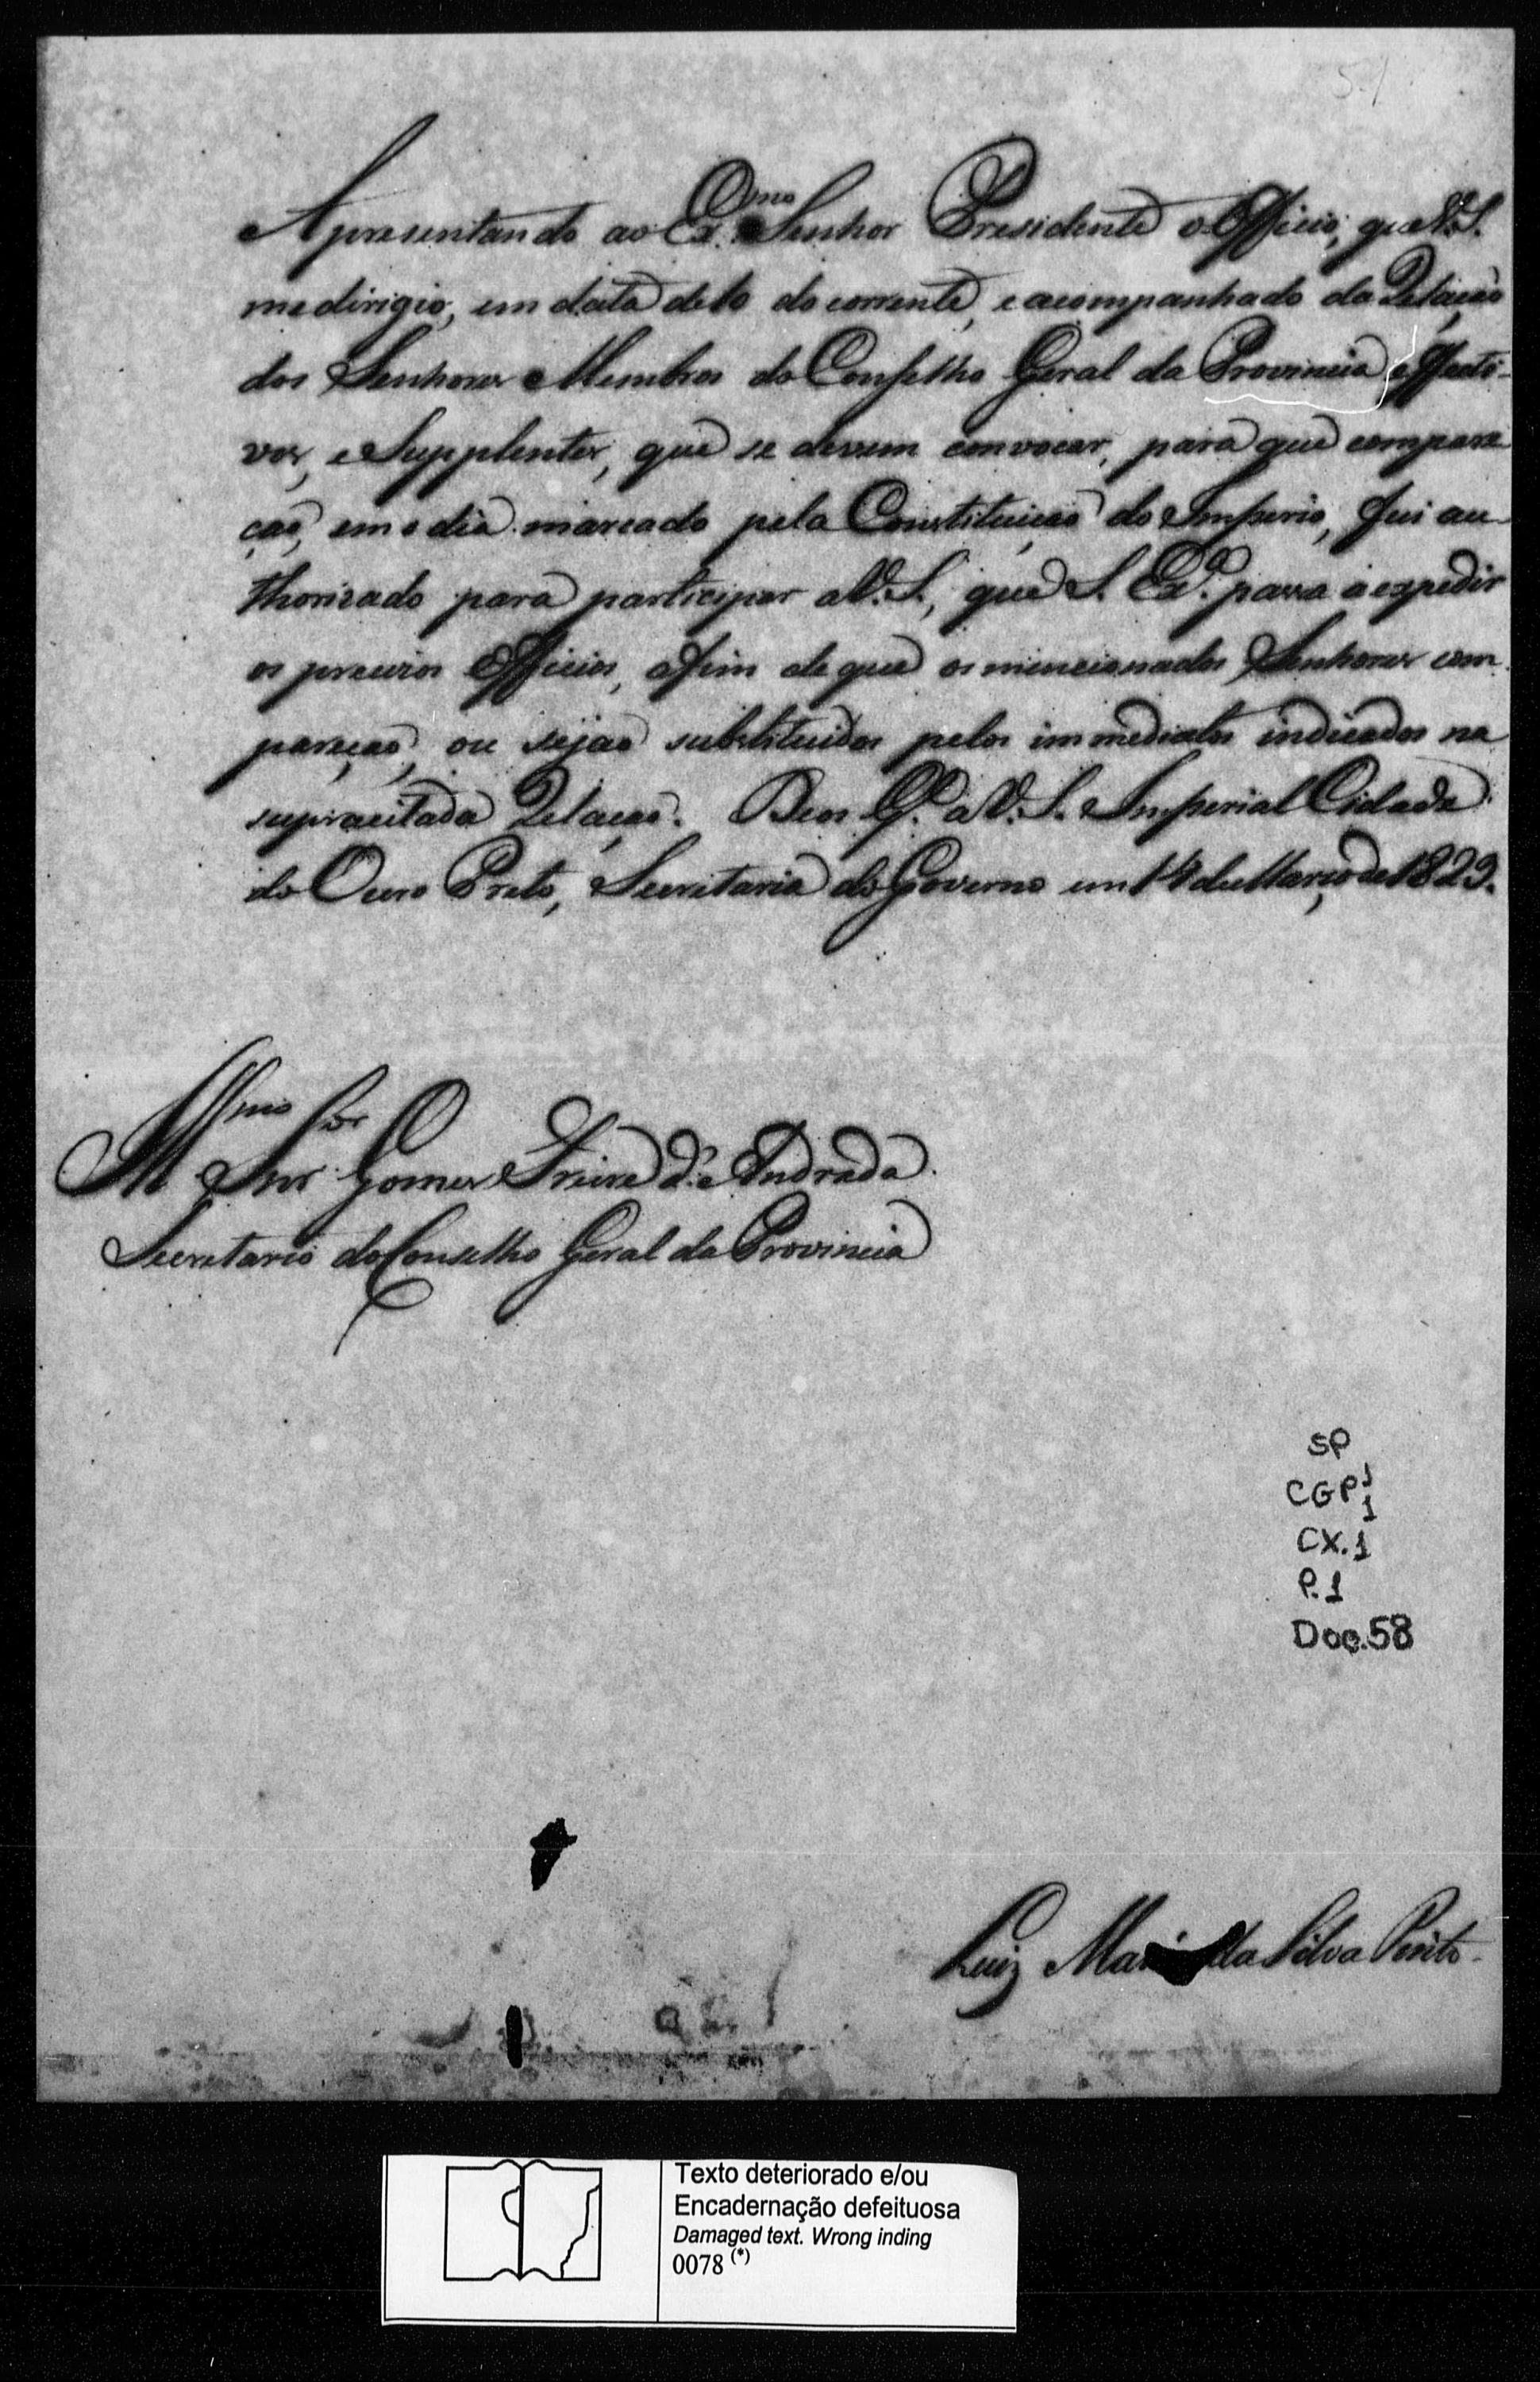 51
Apresentando ao Ex.mo Senhor Presidente o Officio, que V. S.
me dirigio, em data de 10 do corrente, e acompanhado da Relação
dos Senhores Membros do Conselho Geral da Provincia, effecti-
vos, e Supplentes, que se devem convocar, para que compare
ção, em o dia marcado pela Constituição do Imperio, fui au-
thorisado para participar a V. S., que S. Ex.a passa a expedir
os precisos Officios, afim de que os mencionados Senhores com
pareção, ou sejão substituidos pelos immediatos indicados na
supracitada Relação. Deos G.e a V. S. Imperial Cidade
do Ouro Preto, Secretaria do Governo em 14 de Março de 1829.
Illmo Snr
Snr Gomes Freire d'Andrada.
Secretario do Conselho Geral da Provincia
SP
CGP 1
1
CX. 1
P. 1
Doc. 58
Luiz Maria da Silva Pinto
Texto deteriorado e/ou
Encadernação defeituosa
Damaged text. Wrong inding
0078 (*)